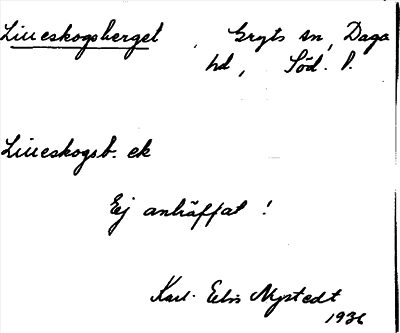 Liueskogsberget, Gryts sn, Daga
hd, Söd. l.
Liueskogsb. ek
Ej anträffat!
Karl-Elvis Nystedt
1936